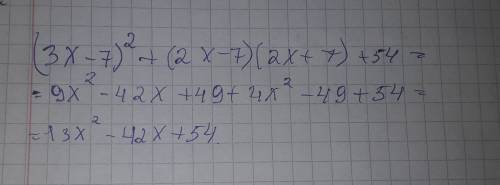 (3x-7)² + (2x-7)(2x+7) + 54 =
= 9x² - 42x + 49 + 4x² - 49 + 54 =
= 13x² - 42x + 54.